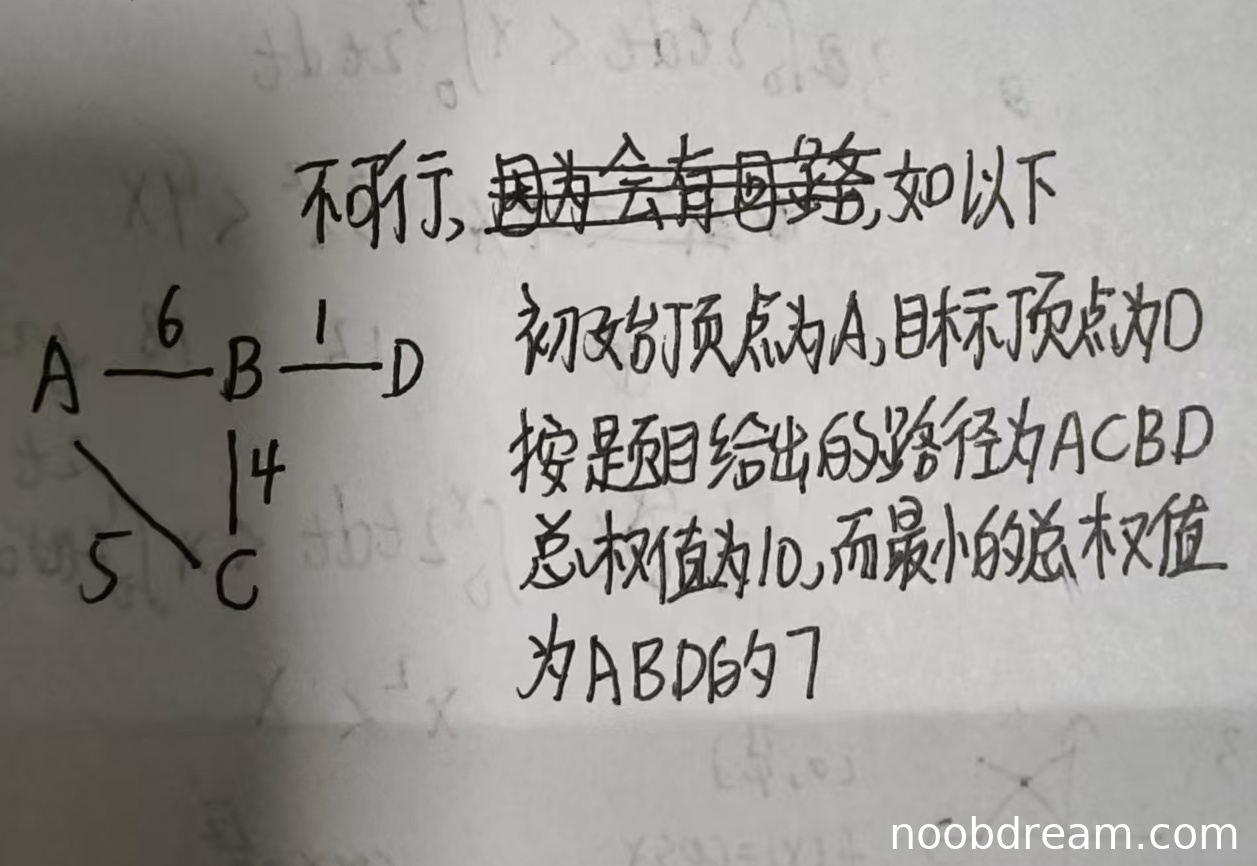 不可行,因为会有回路,如以下
初始顶点为A,目标顶点为D
按是题目给出的路径为ACBD
总权值为10,而最小的总权值
为ABD的7
6
1
A B D
4
5
C
noobdream.com